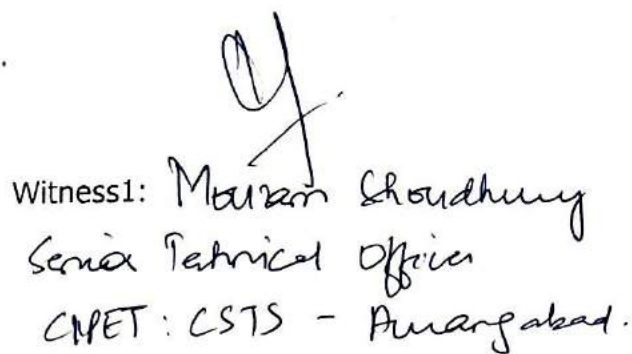 Witness1: Mousam Choudhury
Senior Technical Officer
CIPET : CSTS - Aurangabad.